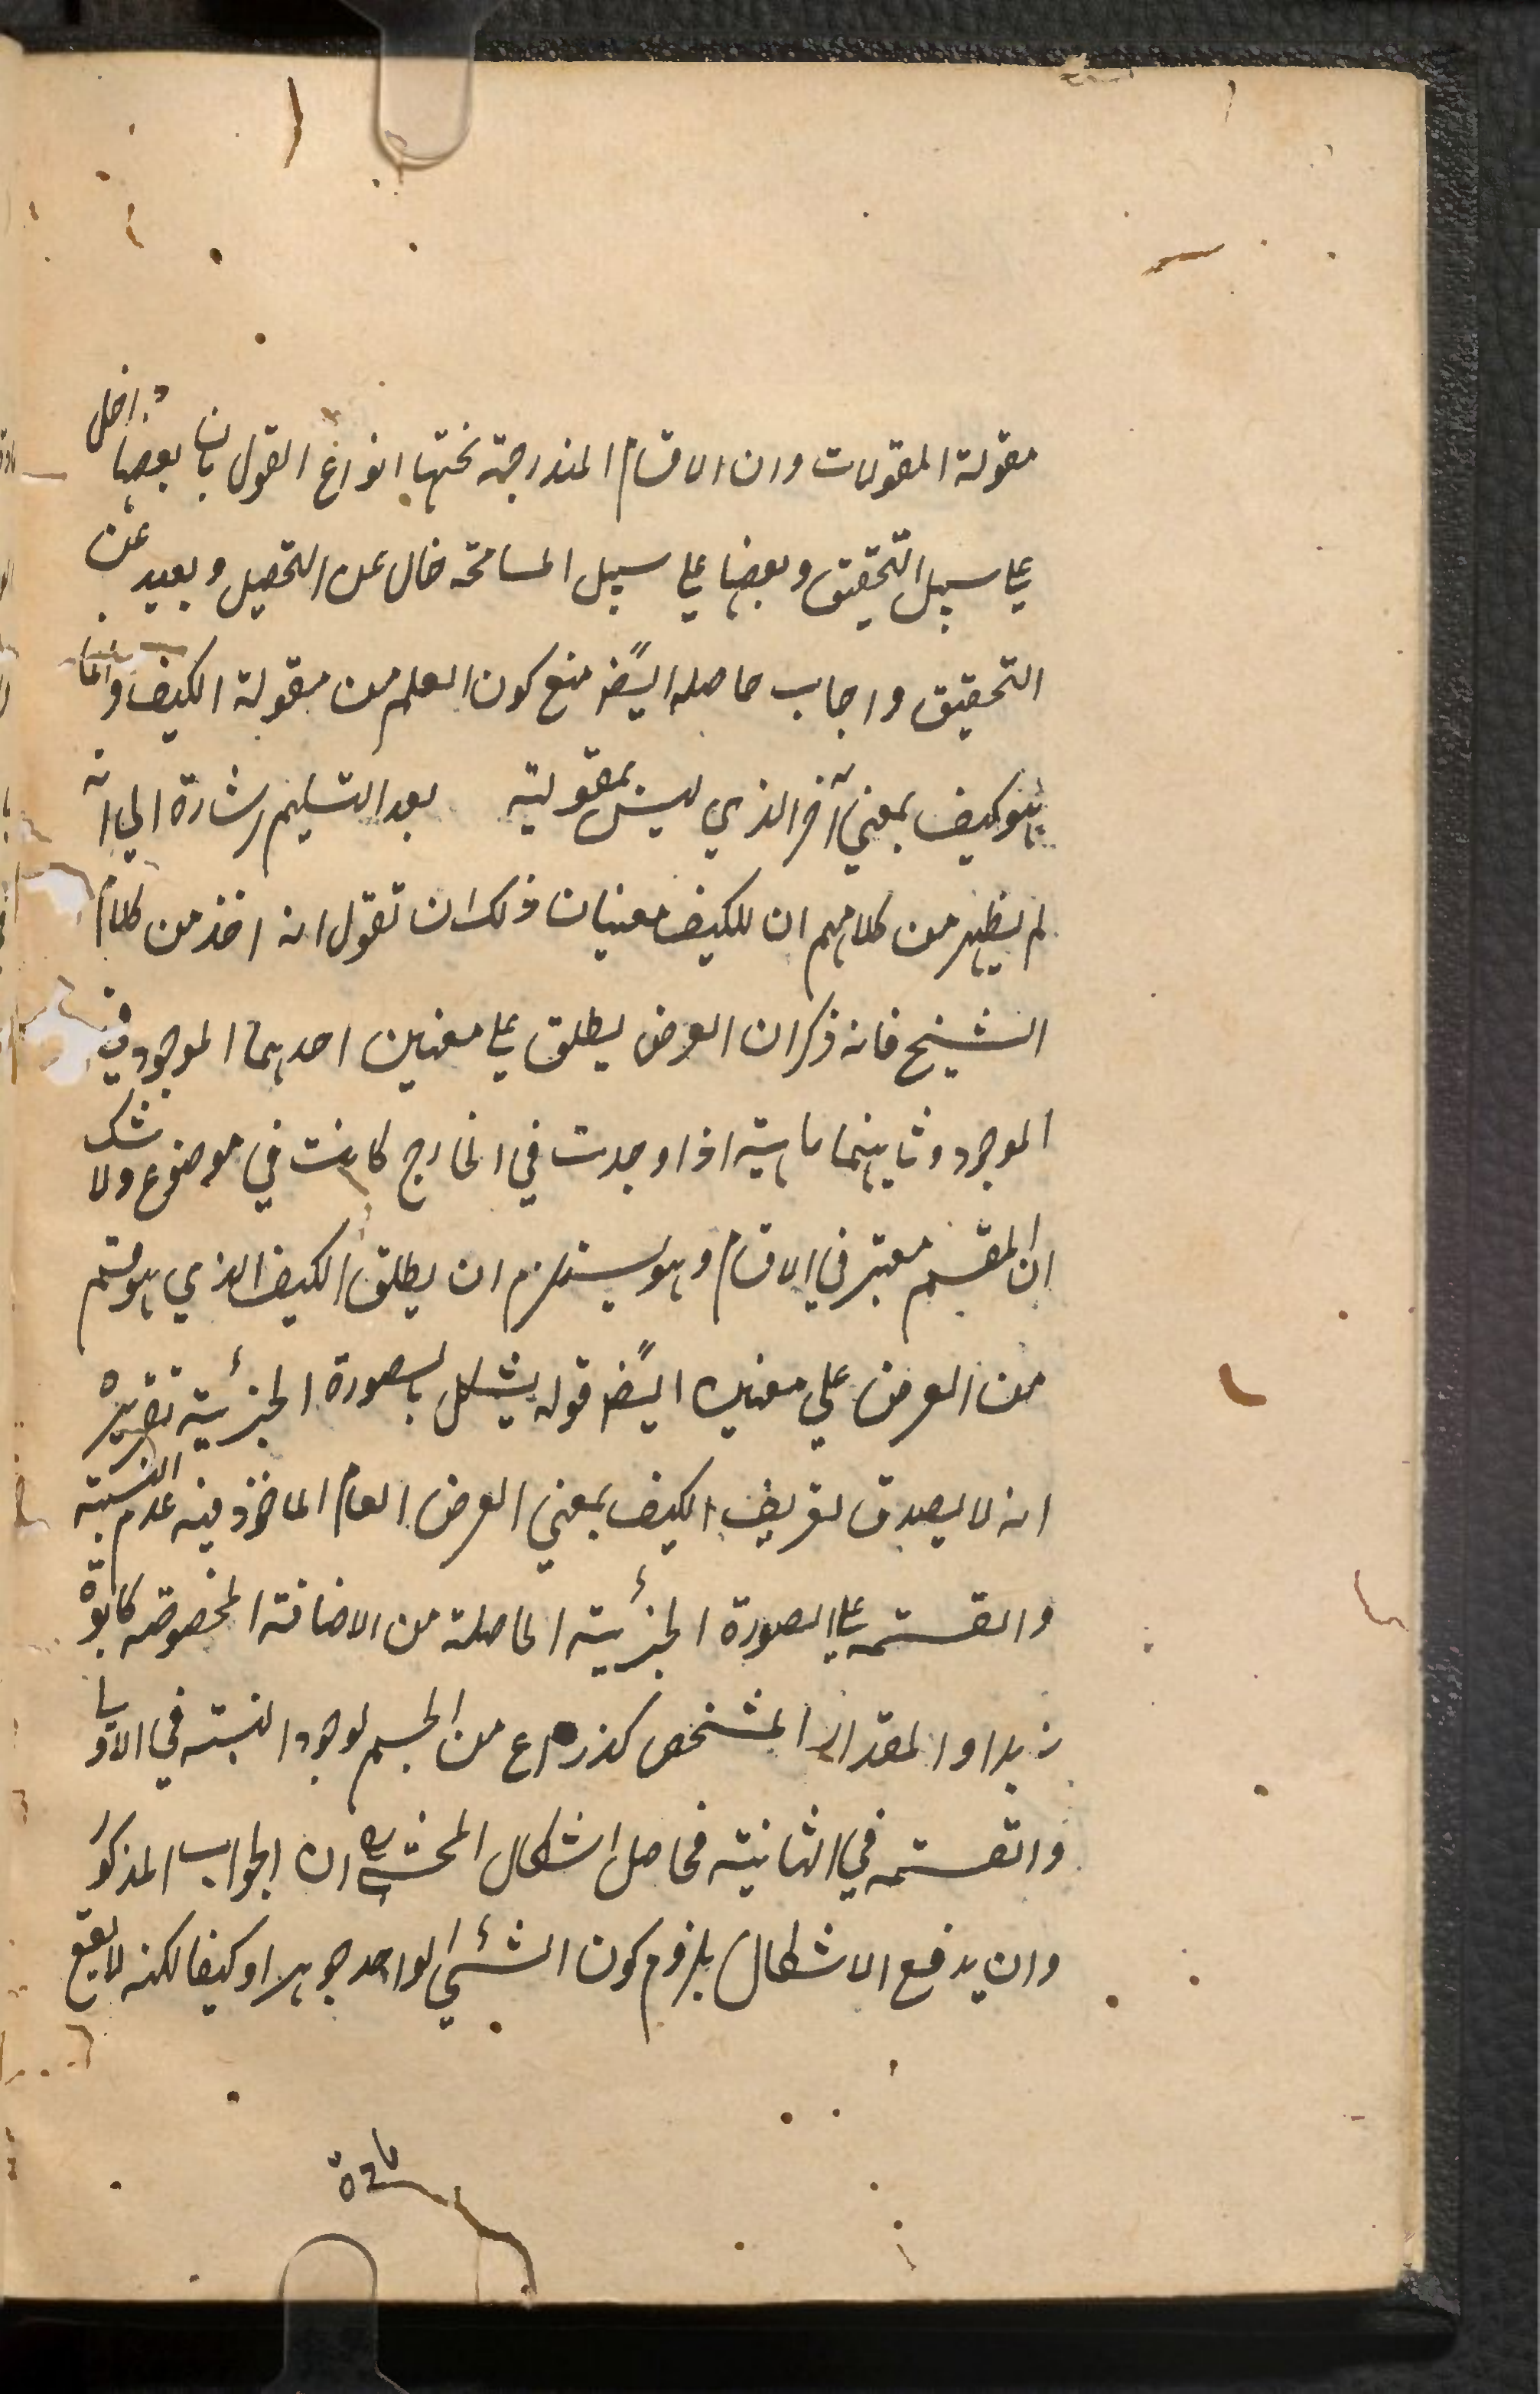 مقولة المقولات وان الاقسام المندرجة تحتها انواع القول بان بعضها داخل
على سبيل التحقيق وبعضها على سبيل المسامحة خال عن التحصيل وبعيد عن
التحقيق واجاب حاصله ايضًا منع كون العلم من مقولة الكيف وانما
هو كيف بمعنى آخر الذي ليس بمقولية بعد التسليم اشارة الى انه
لم يظهر من كلامهم ان للكيف معنيان ذلك ان تقول انه اخذ من كلام
الشيخ فانه ذكر ان العرض يطلق على معنين احدهما الموجود في
الموجود وثانيهما ماهية اذا وجدت في الخارج كانت في موضوع ولا شك
ان المقسم معتبر في الاقسام وهو يستلزم ان يطلق الكيف الذي هو قسم
من العرض على معنين ايضًا قوله يشكل بالصورة الجزئية تقريره
انه لا يصدق تعريف الكيف بمعنى العرض العام الماخوذ فيه عدم النسبة
والقسمة على الصورة الجزئية الحاصلة من الاضافة المخصوصه كابوة
زيد او المقدار المشخص كذراع من الجسم لوجود النسبة في الاولى
والقسمة في الثانية فحاصل اشكال المحشي ان الجواب المذكور
وان يدفع الاشكال بلزوم كون الشئي الواحد جوهرا وكيفا لكنه لا يقع
مادة